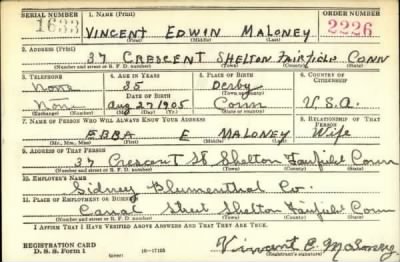 SERIAL NUMBER 1. NAME (Print) ORDER NUMBER
1633 VINCENT EDWIN MALONEY 2226
(First) (Middle) (Last)
2. ADDRESS (Print)
37 CRESCENT SHELTON FAIRFIELD CONN
(Number and street or R. F. D. number) (Town) (County) (State)
3. TELEPHONE 4. AGE IN YEARS 5. PLACE OF BIRTH 6. COUNTRY OF CITIZENSHIP
None 35 Derby
DATE OF BIRTH (Town or county)
None Aug 27 1905 Conn U.S.A.
(Exchange) (Number) (Mo.) (Day) (Yr.) (State or country)
7. NAME OF PERSON WHO WILL ALWAYS KNOW YOUR ADDRESS 8. RELATIONSHIP OF THAT PERSON
EBBA E MALONEY Wife
(Mr., Mrs., Miss) (First) (Middle) (Last)
9. ADDRESS OF THAT PERSON
37 Crescent St Shelton Fairfield Conn
(Number and street or R. F. D. number) (Town) (County) (State)
10. EMPLOYER'S NAME
Sidney Blumenthal Co.
11. PLACE OF EMPLOYMENT OR BUSINESS
Canal Street Shelton Fairfield Conn
(Number and street or R. F. D. number) (Town) (County) (State)
I AFFIRM THAT I HAVE VERIFIED ABOVE ANSWERS AND THAT THEY ARE TRUE.
REGISTRATION CARD
D. S. S. Form 1 16-17105 Vincent E. Maloney